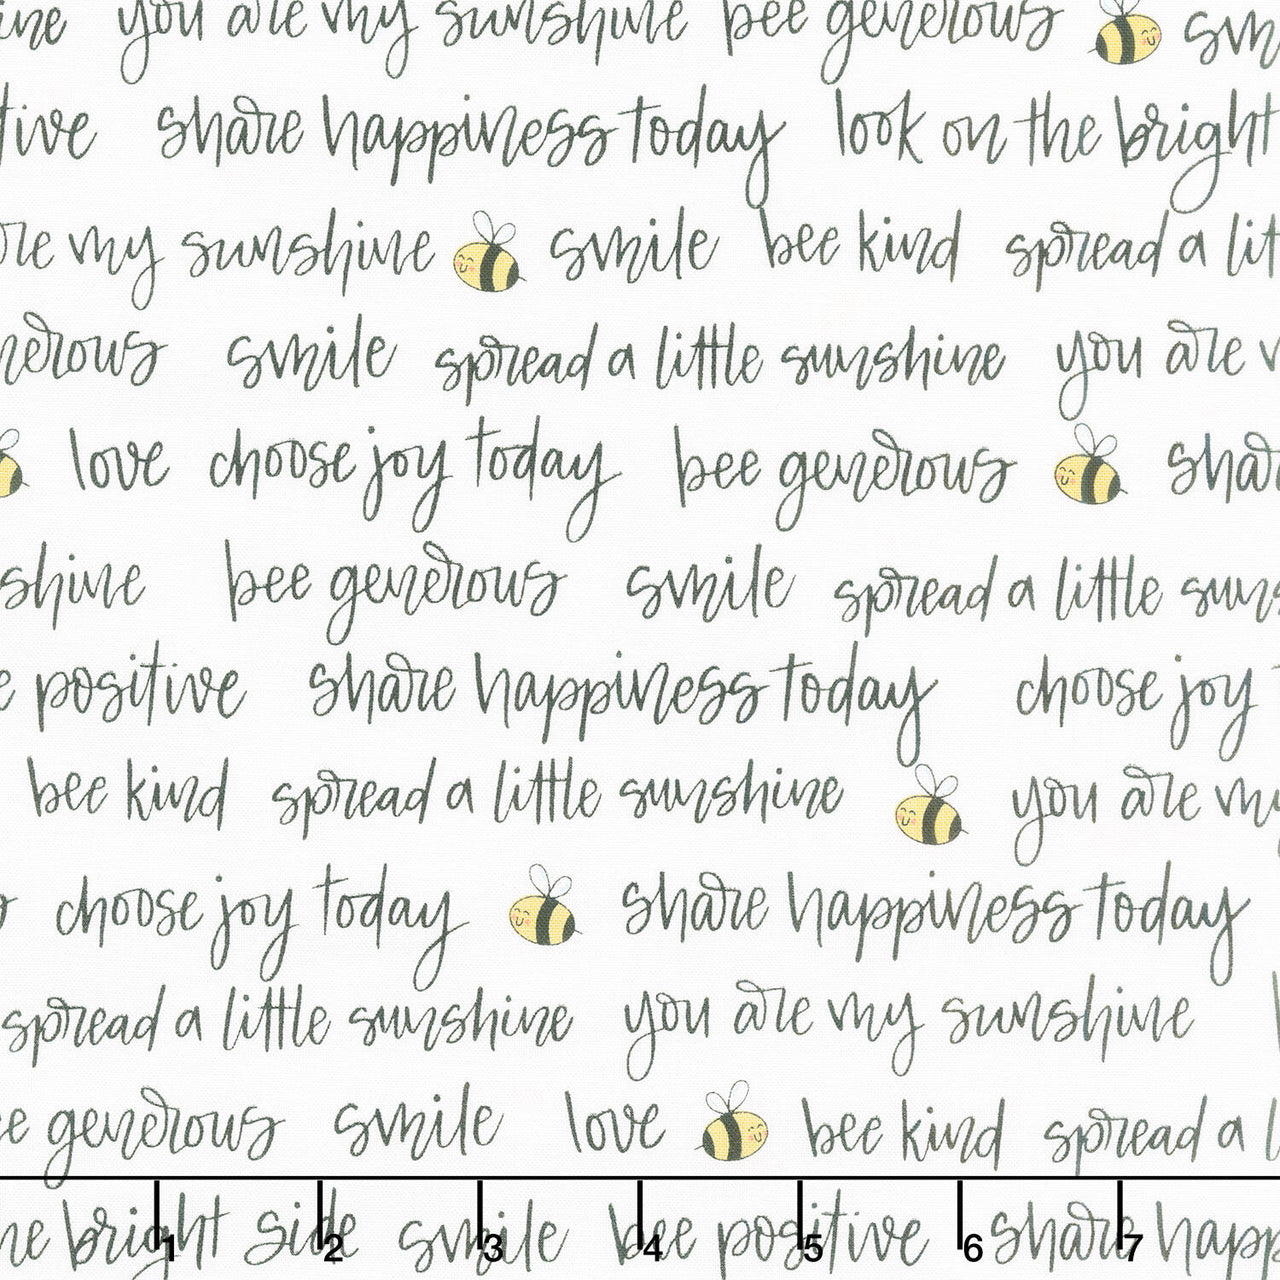 you are my sunshine bee generous
share happiness today look on the bright
my sunshine smile bee kind spread a
smile spread a little sunshine you are
love choose joy today bee generous
bee generous smile spread a little
positive share happiness today choose joy
bee kind spread a little sunshine you are
choose joy today share happiness today
spread a little sunshine you are my sunshine
generous smile love bee kind spread a
bright side smile bee positive share
1 2 3 4 5 6 7